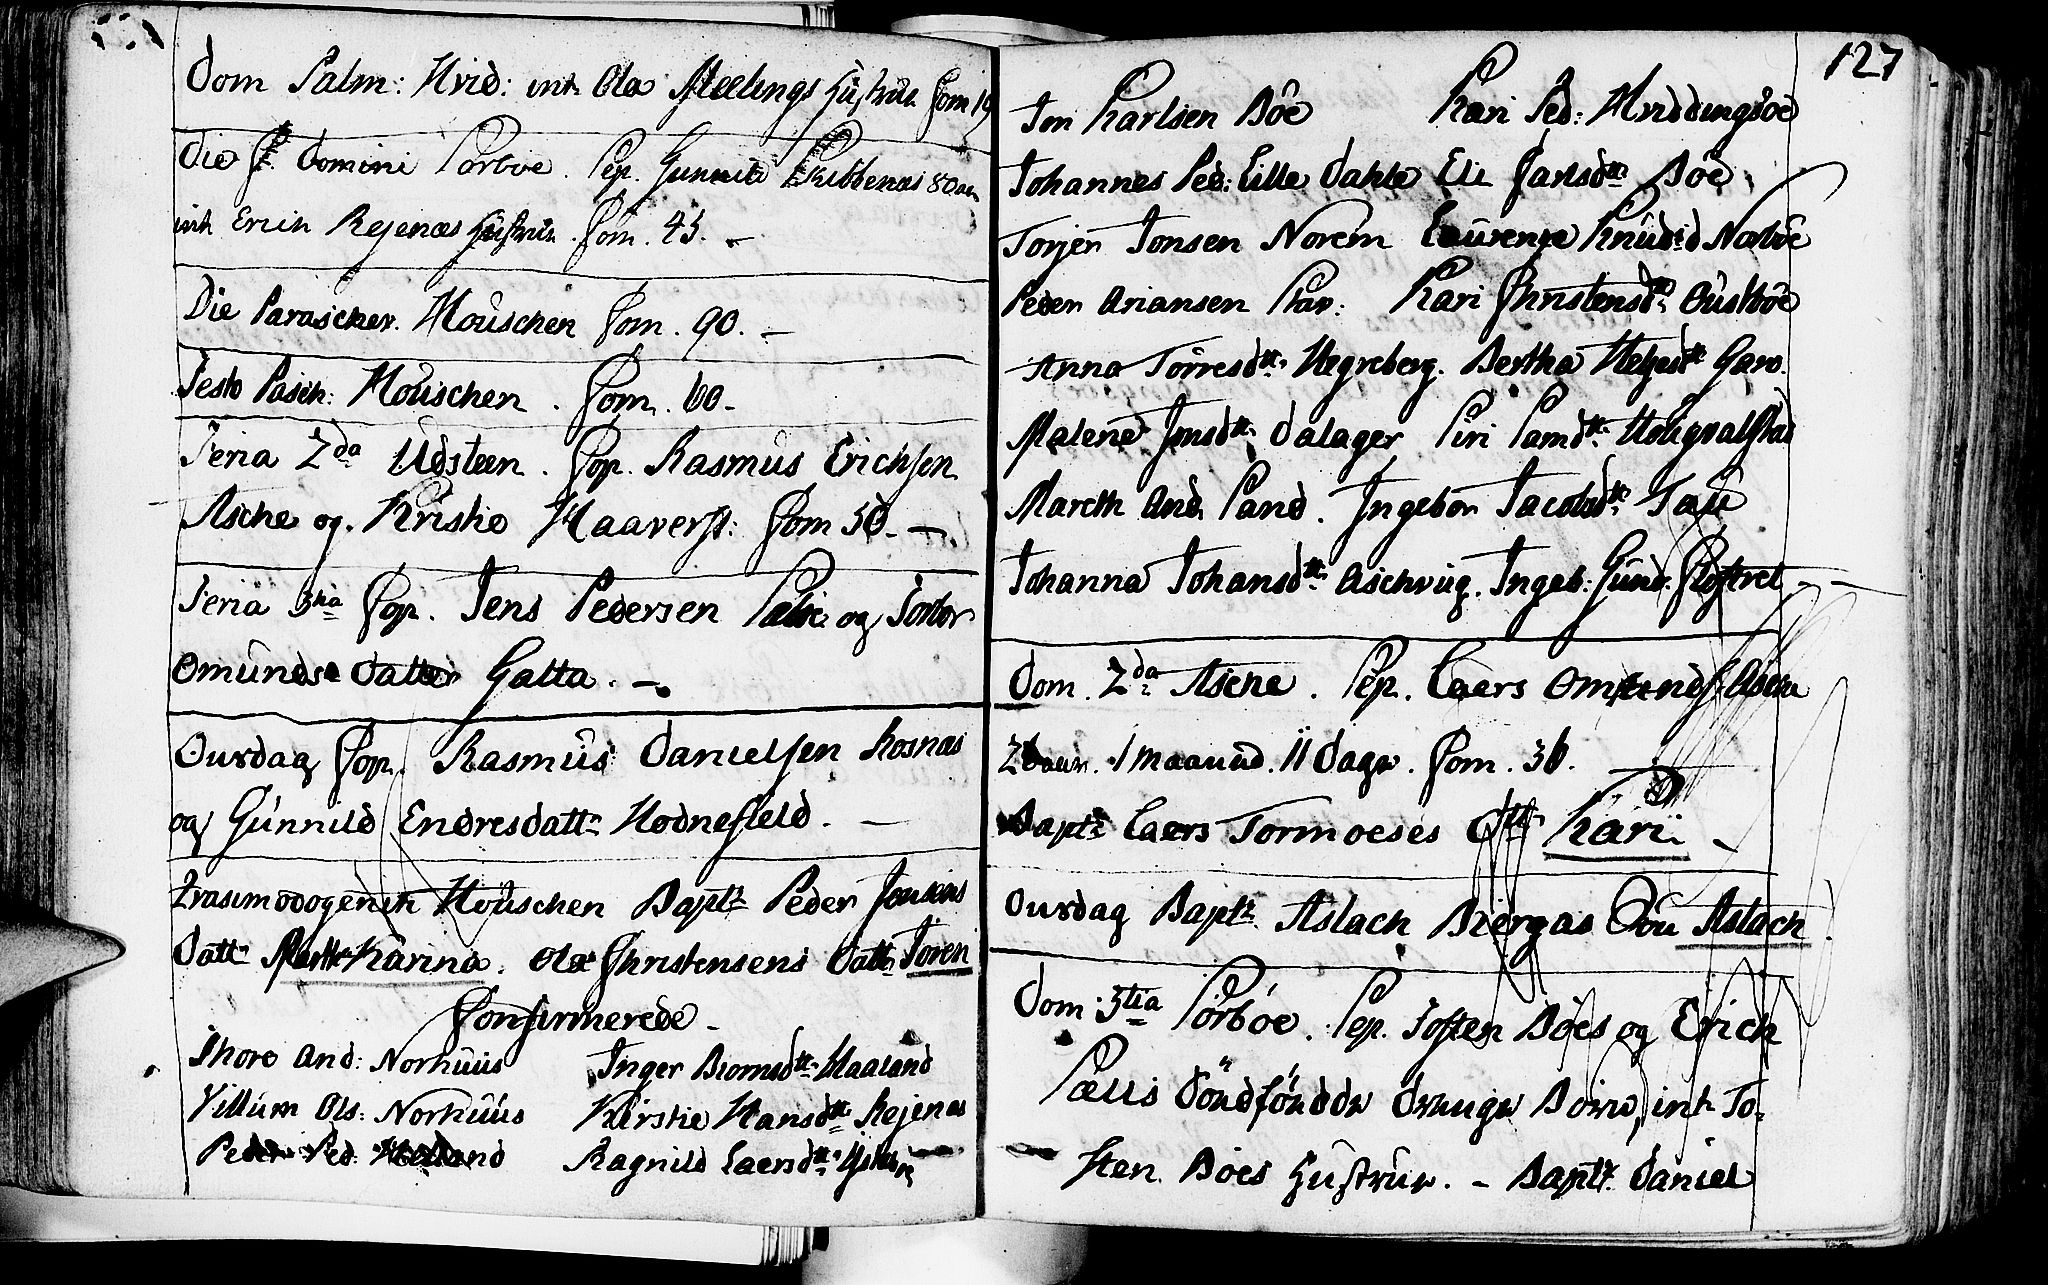 Dom Palm: Hvid: int Ola Meelings Hustrue Com 19
Die V. Domini Torboe. Sep. Gunnild Kibbenæs 80 aar
int. Erich Rejenæs Hustrue. Com. 43. –
Die Parascher. Houschen Com. 90. –
Festo Pasch: Houschen. Com. 60. –
Feria 2da Udsteen. Cop. Rasmus Erichsen
Asche og Kristie Haaverst: Com 50. –
Feria 3tia Cop. Jens Pedersen og Torbor
Omundse Datter Galta. –
Onsdag Cop. Rasmus Danielsen Rosnæs
og Gunnild Endresdattr Hodnefield. –
Houschen Bapt: Peder Jensens
Datt: Karina. Ola Christensens Datt: Toren
Confirmerede –
Thore And: Norhuus Inger Biornsdtt: Haaland
Villum Ols: Norhuus Kirstie Hansdtt: Rejenæs
Peder Ped. Ragnild Laersdtt:
127
Jon Karlsen Böe Kari Ped: Hriddingsöe
Johannes Ped: Lille Dahle Eli Carlsdtt: Böe
Torjer Jonsen Norem Laurense Knudsd Norböe
Peder Ariansen Kari Christensdtt: Oustböe
Anna Torresdtt: Hegreberg. Bertha Helgesdtt: Garo.
Malene Jonsdtt: Dalager Siri
Mareth And. Sand. Ingebor Jacobsdtt: Tau
Johanna Johansdtt: Aschvig. Ingeb: Gund.
Dom. 2da Asche. Sep. Laers Omunds Asche
2 aar. 1 Maaned. 11 Dage. Com. 36.
Bapt: Laers Tormoeses Dtt: Kari –
Onsdag Bapt: Aslach Biergas Sön Aslach.
Dom: 3tia Torböe. Sep. Tosten Böes og Erich
Döndfödde Drenge Börn, int. To-
sten Böes Hustrue. – Bapt: Daniel